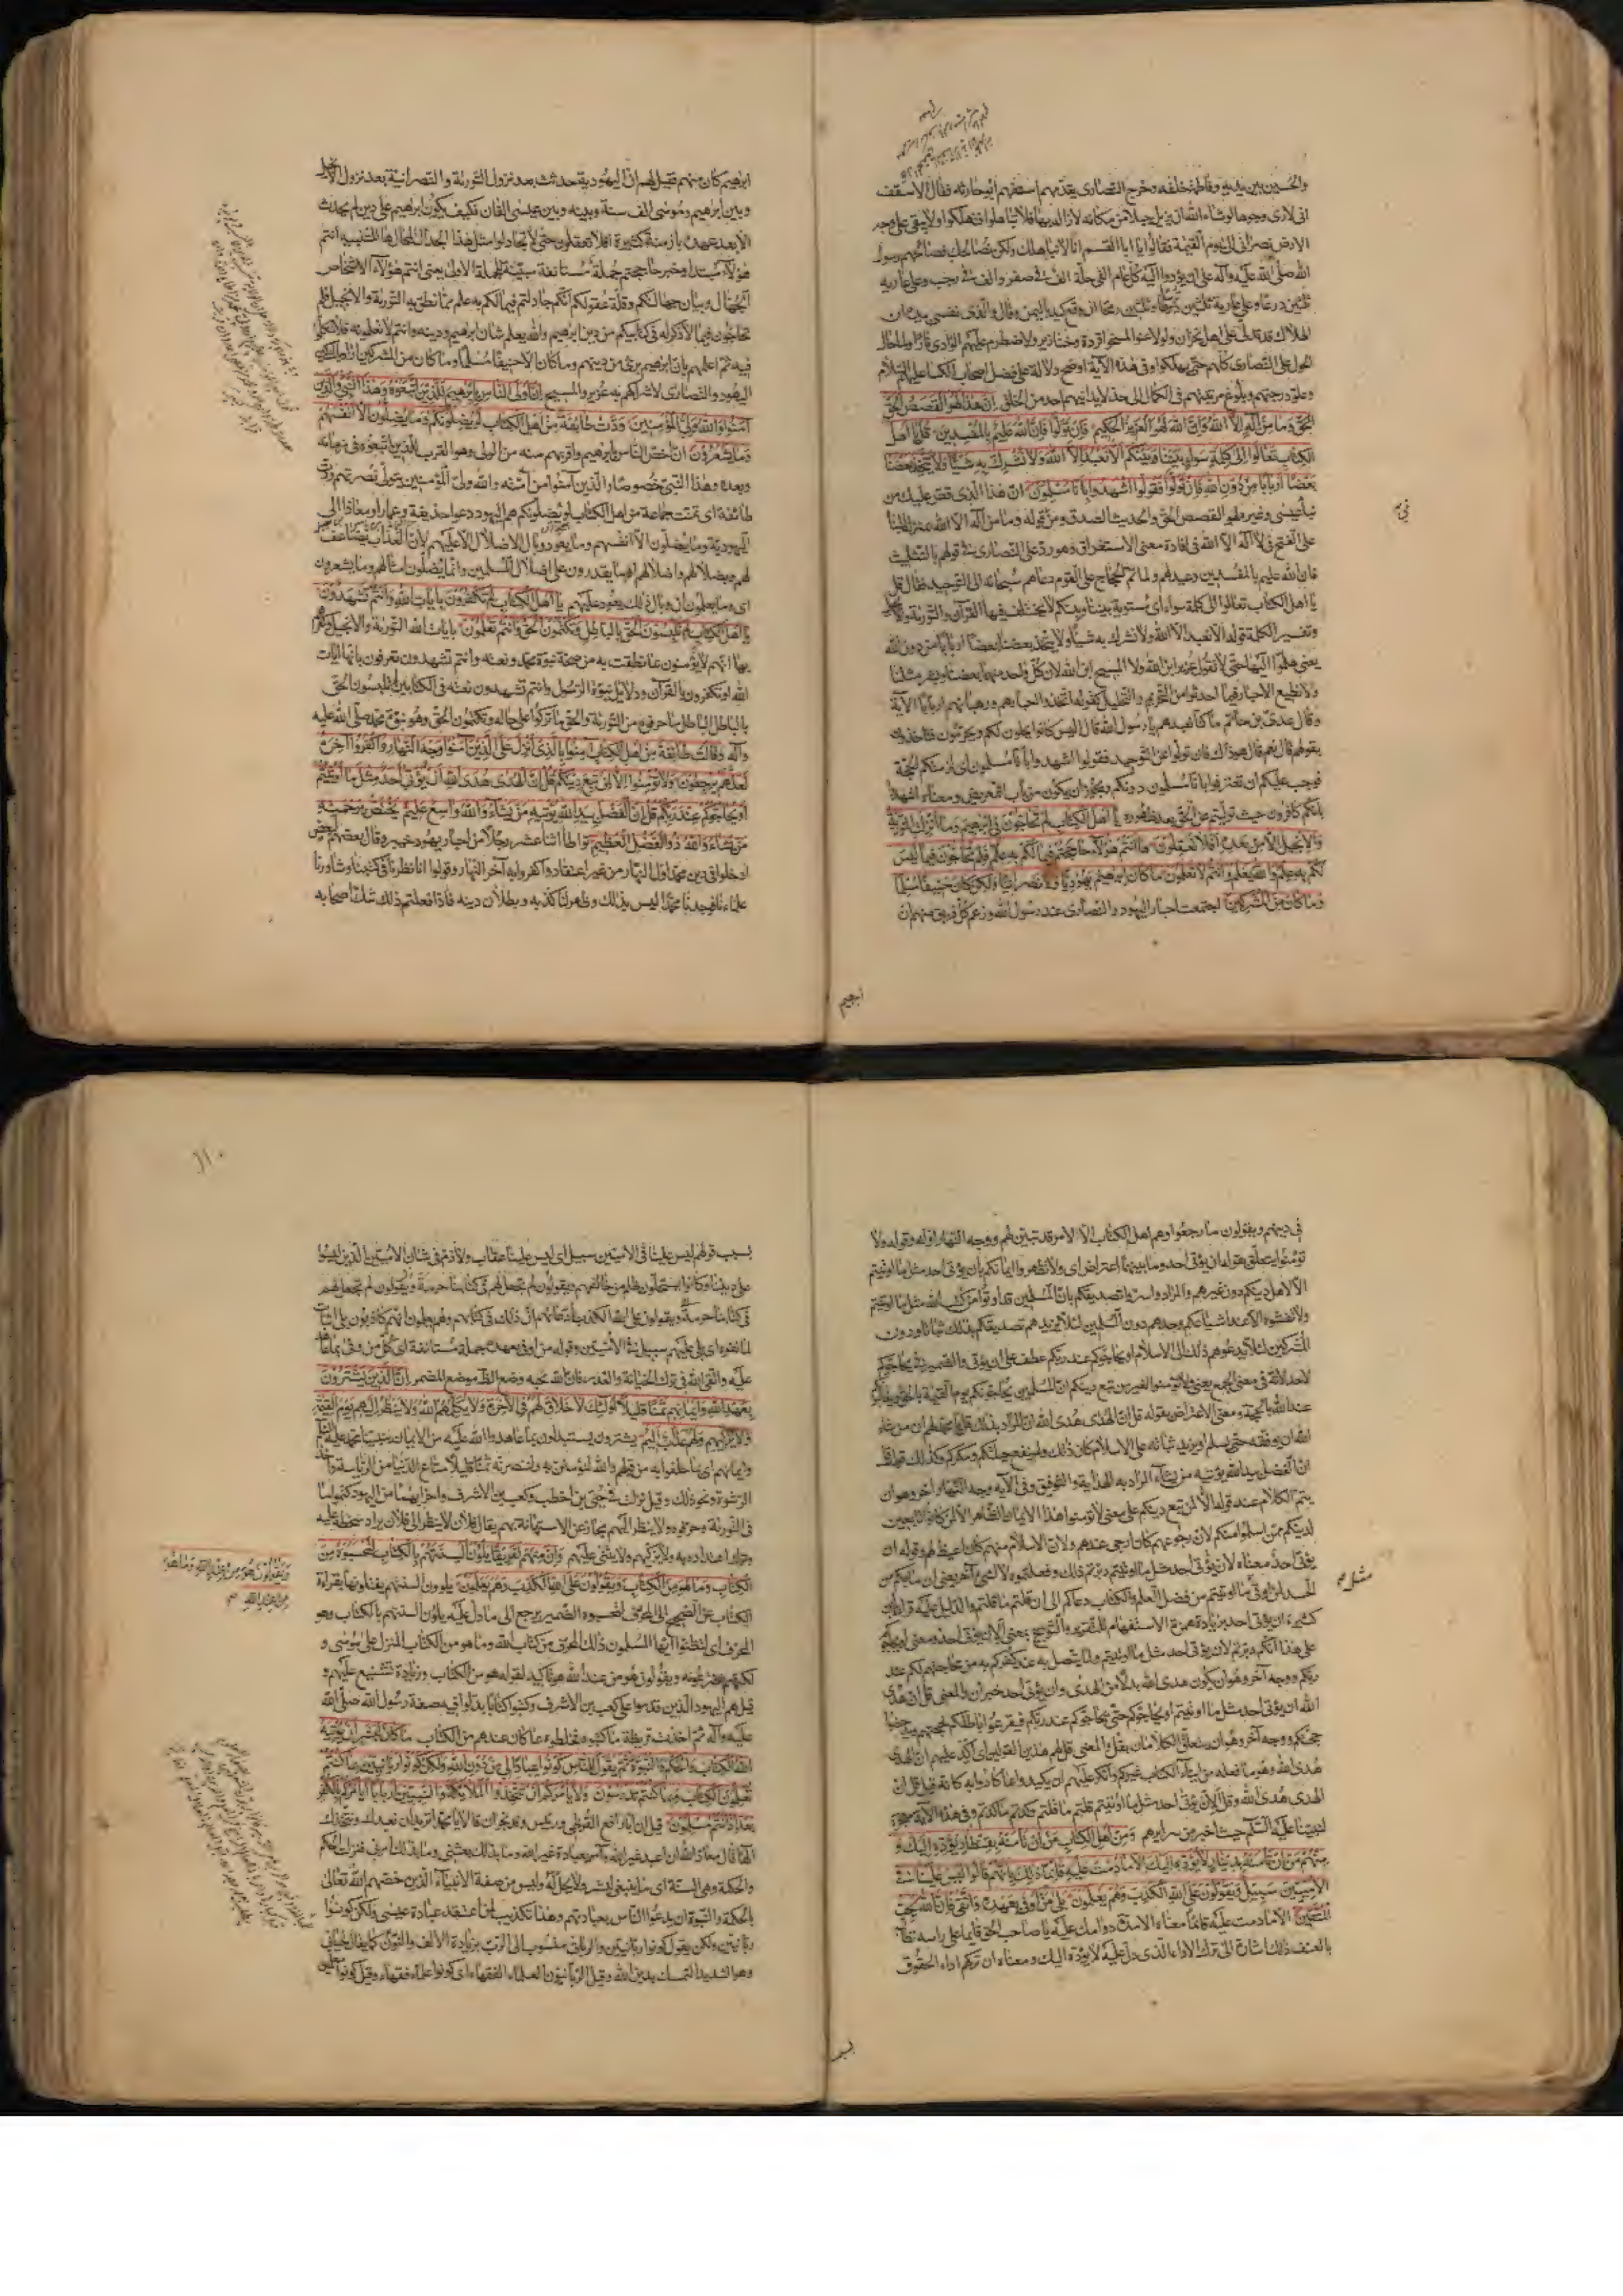 والحسين بين يديه وفاطمة خلفه وخرج النصارى يقدمهم اسقفهم ابو حارثة فقال الاسقف
انى لارى وجوها لو شاء الله ان يزيل جبلا من مكانه لازاله بها فلا تباهلوا فتهلكوا ولا يبقى على وجه
الارض نصرانى الى يوم القيمة فقالوا يا ابا القسم انا لا نباهلك ولكن نصالحك فصالحهم رسول
الله صلى الله عليه وآله على ان يؤدوا اليه كل عام الفى حلة الف فى صفر والف فى رجب وعلى عارية
ثلثين درعا وعلى عارية ثلثين فرسا وثلثين رمحا ان وقع كيد باليمن وقال والذى نفسى بيده ان
الهلاك قد تدلى على اهل نجران ولو لاعنوا لمسخوا قردة وخنازير ولاضطرم عليهم الوادى نارا ولما حال
الحول على النصارى كلهم حتى يهلكوا وفى هذه الآية اوضح دلالة على فضل اصحاب الكساء عليهم السلام
وعلو درجتهم وبلوغ مرتبتهم فى الكمال الى حد لا يدانيهم احد من الخلق ان هذا لهو القصص الحق
وما من اله الا الله وان الله لهو العزيز الحكيم فان تولوا فان الله عليم بالمفسدين قل يا اهل
الكتاب تعالوا الى كلمة سواء بيننا وبينكم الا نعبد الا الله ولا نشرك به شيئا ولا يتخذ بعضنا
بعضا اربابا من دون الله فان تولوا فقولوا اشهدوا بانا مسلمون ان هذا الذى قص عليك من
نبأ عيسى وغيره لهو القصص الحق والحديث الصدق ومن قوله وما من اله الا الله بمنزلة البناء
على الفتح فى لا اله الا الله فى افادة معنى الاستغراق وهو رد على النصارى فى قولهم بالتثليث
فان الله عليم بالمفسدين وعيد لهم ولما تم الحجاج على القوم دعاهم سبحانه الى التوحيد فقال قل
يا اهل الكتاب تعالوا الى كلمة سواء اى مستوية بيننا وبينكم لا يختلف فيها القرآن والتورية والانجيل
وتفسير الكلمة قوله الا نعبد الا الله ولا نشرك به شيئا ولا يتخذ بعضنا بعضا اربابا من دون الله
يعنى هلموا اليها حتى لا نقول عزير ابن الله ولا المسيح ابن الله لان كل واحد منهما بعضنا وبشر مثلنا
ولا نطيع الاحبار فيما احدثوا من التحريم والتحليل كقوله اتخذوا احبارهم ورهبانهم اربابا الآية
وقال عدى بن حاتم ما كنا نعبدهم يا رسول الله قال اليس كانوا يحلون لكم ويحرمون فتأخذون
بقولهم قال نعم قال هو ذاك فان تولوا عن التوحيد فقولوا اشهدوا بانا مسلمون اى لزمتكم الحجة
فوجب عليكم ان تعترفوا بانا مسلمون دونكم ويجوز ان يكون من باب التعريض ومعناه اشهدوا
بانكم كافرون حيث توليتم عن الحق بعد ظهوره يا اهل الكتاب لم تحاجون فى ابرهيم وما انزلت التورية
والانجيل الا من بعده افلا تعقلون ها انتم هؤلاء حاججتم فيما لكم به علم فلم تحاجون فيما ليس
لكم به علم والله يعلم وانتم لا تعلمون ما كان ابرهيم يهوديا ولا نصرانيا ولكن كان حنيفا مسلما
وما كان من المشركين اجتمعت احبار اليهود والنصارى عند رسول الله وزعم كل فريق منهم ان
ابرهيم كان منهم فقيل لهم ان اليهودية حدثت بعد نزول التورية والنصرانية بعد نزول الانجيل
وبين ابرهيم وموسى الف سنة وبينه وبين عيسى الفان فكيف يكون ابرهيم على دين لم يحدث
الا بعد عهده بازمنة كثيرة افلا تعقلون حتى لا تجادلوا مثل هذا الجدال المحال ها للتنبيه انتم
هؤلاء مبتدا وخبر حاججتم جملة مستانفة مبينة للجملة الاولى يعنى انتم هؤلاء الاشخاص
الجهال وبيان جهالتكم وقلة عقولكم انكم جادلتم فيما لكم به علم مما نطق به التورية والانجيل فلم
تحاجون فيما لا ذكر له فى كتابيكم من دين ابرهيم والله يعلم شان ابرهيم ودينه وانتم لا تعلمونه فلا تتكلموا
فيه ثم اعلمهم بان ابرهيم برئ من دينهم وما كان الا حنيفا مسلما وما كان من المشركين اراد بالمشركين
اليهود والنصارى لاشراكهم به عزيرا والمسيح ان اولى الناس بابرهيم للذين اتبعوه وهذا النبى والذين
آمنوا والله ولى المؤمنين ودت طائفة من اهل الكتاب لو يضلونكم وما يضلون الا انفسهم
وما يشعرون ان اخص الناس بابرهيم واقربهم منه من الولى وهو القرب للذين اتبعوه فى زمانه
وبعده وهذا النبى خصوصا والذين آمنوا من امته والله ولى المؤمنين يتولى نصرتهم ودت
طائفة اى تمنت جماعة من اهل الكتاب لو يضلونكم هم اليهود دعوا حذيفة وعمارا ومعاذا الى
اليهودية وما يضلون الا انفسهم وما يعود وبال الاضلال الا عليهم لان العذاب يضاعف
لهم بضلالهم واضلالهم او ما يقدرون على اضلال المسلمين وانما يضلون امثالهم وما يشعرون
اى وما يعلمون ان وبال ذلك يعود عليهم يا اهل الكتاب لم تكفرون بايات الله وانتم تشهدون
يا اهل الكتاب لم تلبسون الحق بالباطل وتكتمون الحق وانتم تعلمون بايات الله التورية والانجيل وكفرهم
بها انهم لا يؤمنون بما نطقت به من صحة نبوة محمد ونعته وانتم تشهدون تعرفون بانها ايات
الله او تكفرون بالقرآن ودلائل نبوة الرسول وانتم تشهدون نعته فى الكتابين لم تلبسون الحق
بالباطل الباطل ما حرفوه من التورية والحق ما تركوا على حاله وتكتمون الحق وهو نبوة محمد صلى الله عليه
وآله وقالت طائفة من اهل الكتاب امنوا بالذى انزل على الذين آمنوا وجه النهار واكفروا آخره
لعلهم يرجعون ولا تؤمنوا الا لمن تبع دينكم قل ان الهدى هدى الله ان يؤتى احد مثل ما اوتيتم
او يحاجوكم عند ربكم قل ان الفضل بيد الله يؤتيه من يشاء والله واسع عليم يختص برحمته
من يشاء والله ذو الفضل العظيم تواطأ اثنا عشر رجلا من احبار يهود خيبر وقال بعضهم لبعض
ادخلوا فى دين محمد اول النهار من غير اعتقاد واكفروا به آخر النهار وقولوا انا نظرنا فى كتبنا وشاورنا
علماءنا فوجدنا محمدا ليس بذلك وظهر لنا كذبه وبطلان دينه فاذا فعلتم ذلك شك اصحابه
فى دينهم ويقولون ما رجعوا وهم اهل الكتاب الا لامر قد تبين لهم ووجه النهار اوله وقوله ولا
تؤمنوا يتعلق بقوله ان يؤتى احد وما بينهما اعتراض اى ولا تظهروا ايمانكم بان يؤتى احد مثل ما اوتيتم
الا لاهل دينكم دون غيرهم والمراد اسروا تصديقكم بان المسلمين قد اوتوا من كتب الله مثل ما اوتيتم
ولا تفشوه الا عند اشياعكم وحدهم دون المسلمين لئلا يزيدهم تصديقكم بذلك ثباتا ودون
المشركين لئلا يدعوهم ذلك الى الاسلام او يحاجوكم عند ربكم عطف على ان يؤتى والضمير فى يحاجوكم
لاحد لانه فى معنى الجمع يعنى ولا تؤمنوا لغير من تبع دينكم ان المسلمين يحاجونكم يوم القيمة بالحق ويغالبونكم
عند الله بالحجة ومعنى الاعتراض بقوله قل ان الهدى هدى الله ان المراد بذلك قل يا محمد لهم ان من شاء
الله ان يوفقه حتى يسلم او يزيد ثباته على الاسلام كان ذلك ولم ينفع حيلتكم ومكركم وكذلك قوله قل
ان الفضل بيد الله يؤتيه من يشاء المراد به الهداية والتوفيق وفى الآية وجه آخر وهو ان
يتم الكلام عند قوله الا لمن تبع دينكم على معنى لا تؤمنوا هذا الايمان الظاهر الا لمن كانوا تابعين
لدينكم ممن اسلموا منكم لان رجوعهم كان ارجى عندهم ولان الاسلام منهم كان اغيظ لهم وقوله ان
يؤتى احد معناه لان يؤتى احد مثل ما اوتيتم دبرتم ذلك وفعلتموه لا لشئ آخر يعنى ان ما بكم من
الحسد لمن اوتى ما اوتيتم من فضل العلم والكتاب دعاكم الى ان قلتم ما قلتم والدليل عليه قراءة ابن
كثير أن يؤتى احد بزيادة همزة الاستفهام للتقرير والتوبيخ بمعنى ألان يؤتى احد ومعنى او يحاجوكم
على هذا انكم دبرتم لان يؤتى احد مثل ما اوتيتم ولما يتصل به عند كفركم به من محاجتهم لكم عند
ربكم ووجه آخر وهو ان يكون هدى الله بدلا من الهدى وان يؤتى احد خبر ان والمعنى قل ان هدى
الله ان يؤتى احد مثل ما اوتيتم او يحاجوكم حتى يحاجوكم عند ربكم فيقرعوا باطلكم بحقهم ويدحضوا
حجتكم ووجه آخر وهو ان يتعلق الكلامان بقل والمعنى قل لهم هذين القولين اى اكد عليهم ان الهدى
هدى الله وهو ما فعله من ايتاء الكتاب غيركم وانكر عليهم ان يكيدوا ما كادوا به كانه قيل قل ان
الهدى هدى الله وقل ألان يؤتى احد مثل ما اوتيتم قلتم ما قلتم وكدتم ما كدتم وفى هذه الآية معجزة
لنبينا عليه السلم حيث اخبر عن سرائرهم ومن اهل الكتاب من ان تأمنه بقنطار يؤده اليك و
منهم من ان تأمنه بدينار لا يؤده اليك الا ما دمت عليه قائما ذلك بانهم قالوا ليس علينا فى
الاميين سبيل ويقولون على الله الكذب وهم يعلمون بلى من اوفى بعهده واتقى فان الله يحب
المتقين الا ما دمت عليه قائما معناه الا مدة دوامك عليه يا صاحب الحق قائما على راسه
بالعنف ذلك اشارة الى ترك الاداء الذى دل عليه لا يؤده اليك ومعناه ان تركهم اداء الحقوق
مثل
١١٠
بسبب قولهم ليس علينا فى الاميين سبيل اى ليس علينا عقاب ولا ذم فى شان الاميين الذين ليسوا
على ديننا وكانوا يستحلون ظلم من خالفهم ويقولون لم تجعل لهم فى كتابنا حرمة
ويقولون على الله الكذب بادعائهم ان ذلك فى كتابهم وهم يعلمون انهم كاذبون بلى اثبات
لما نفوه اى بلى عليهم سبيل فى الاميين وقوله من اوفى بعهده جملة مستانفة اى كل من وفى بما عاهد
عليه واتقى الله فى ترك الخيانة والغدر فان الله يحبه وضع الظاهر موضع المضمر ان الذين يشترون
بعهد الله وايمانهم ثمنا قليلا اولئك لا خلاق لهم فى الآخرة ولا يكلمهم الله ولا ينظر اليهم يوم القيمة
ولا يزكيهم ولهم عذاب اليم يشترون يستبدلون بما عاهدوا الله عليه من الايمان بنبينا محمد عليه السلم
وايمانهم اى بما حلفوا به من قولهم والله لنؤمنن به ولننصرنه ثمنا قليلا متاع الدنيا من الرياسة واخذ
الرشوة ونحو ذلك وقيل نزلت فى حيى بن اخطب وكعب بن الاشرف واضرابهما من اليهود كتموا ما
فى التورية وحرفوه ولا ينظر اليهم مجاز عن الاستهانة بهم يقال فلان لا ينظر الى فلان يراد سخطه عليه
وترك اعتداده به ولا يزكيهم ولا يثنى عليهم وان منهم لفريقا يلوون السنتهم بالكتاب لتحسبوه من
الكتاب وما هو من الكتاب ويقولون على الله الكذب وهم يعلمون يلوون السنتهم يفتلونها بقراءة
الكتاب عن الصحيح الى المحرف لتحسبوه الضمير يرجع الى ما دل عليه يلوون السنتهم بالكتاب وهو
المحرف اى لتظنوا ايها المسلمون ذلك المحرف من كتاب الله وما هو من الكتاب المنزل على موسى و
ويقولون هو من عند الله هو تاكيد لقوله هو من الكتاب وزيادة تشنيع عليهم و
قيل هم اليهود الذين قدموا على كعب بن الاشرف وكتبوا كتابا بدلوا فيه صفة رسول الله صلى الله
عليه وآله ثم اخذت قريظة ما كتبوه فخلطوه بما كان عندهم من الكتاب ما كان لبشر ان يؤتيه
الله الكتاب والحكم والنبوة ثم يقول للناس كونوا عبادا لى من دون الله ولكن كونوا ربانيين بما كنتم
تعلمون الكتاب وبما كنتم تدرسون ولا يأمركم ان تتخذوا الملائكة والنبيين اربابا ايأمركم بالكفر
بعد اذ انتم مسلمون قيل ان ابا رافع القرظى ورئيس وفد نجران قالا يا محمد اتريد ان نعبدك ونتخذك
الها قال معاذ الله ان اعبد غير الله او آمر بعبادة غير الله وما بذلك بعثنى وما بذلك امرنى فنزلت الحكم
والحكمة وهى السنة اى ما ينبغى لبشر ولا يحل له وليس من صفة الانبياء الذين خصهم الله تعالى
بالحكمة والنبوة ان يدعوا الناس بعبادتهم وهذا تكذيب لمن اعتقد عبادة عيسى ولكن كونوا
ربانيين ولكن يقول كونوا ربانيين والربانى منسوب الى الرب بزيادة الالف والنون كما يقال لحيانى
وهو الشديد التمسك بدين الله وقيل الربانيون العلماء الفقهاء اى كونوا علماء فقهاء وقيل كونوا معلمين
ويقولون هو من عند الله وما هو
من عند الله